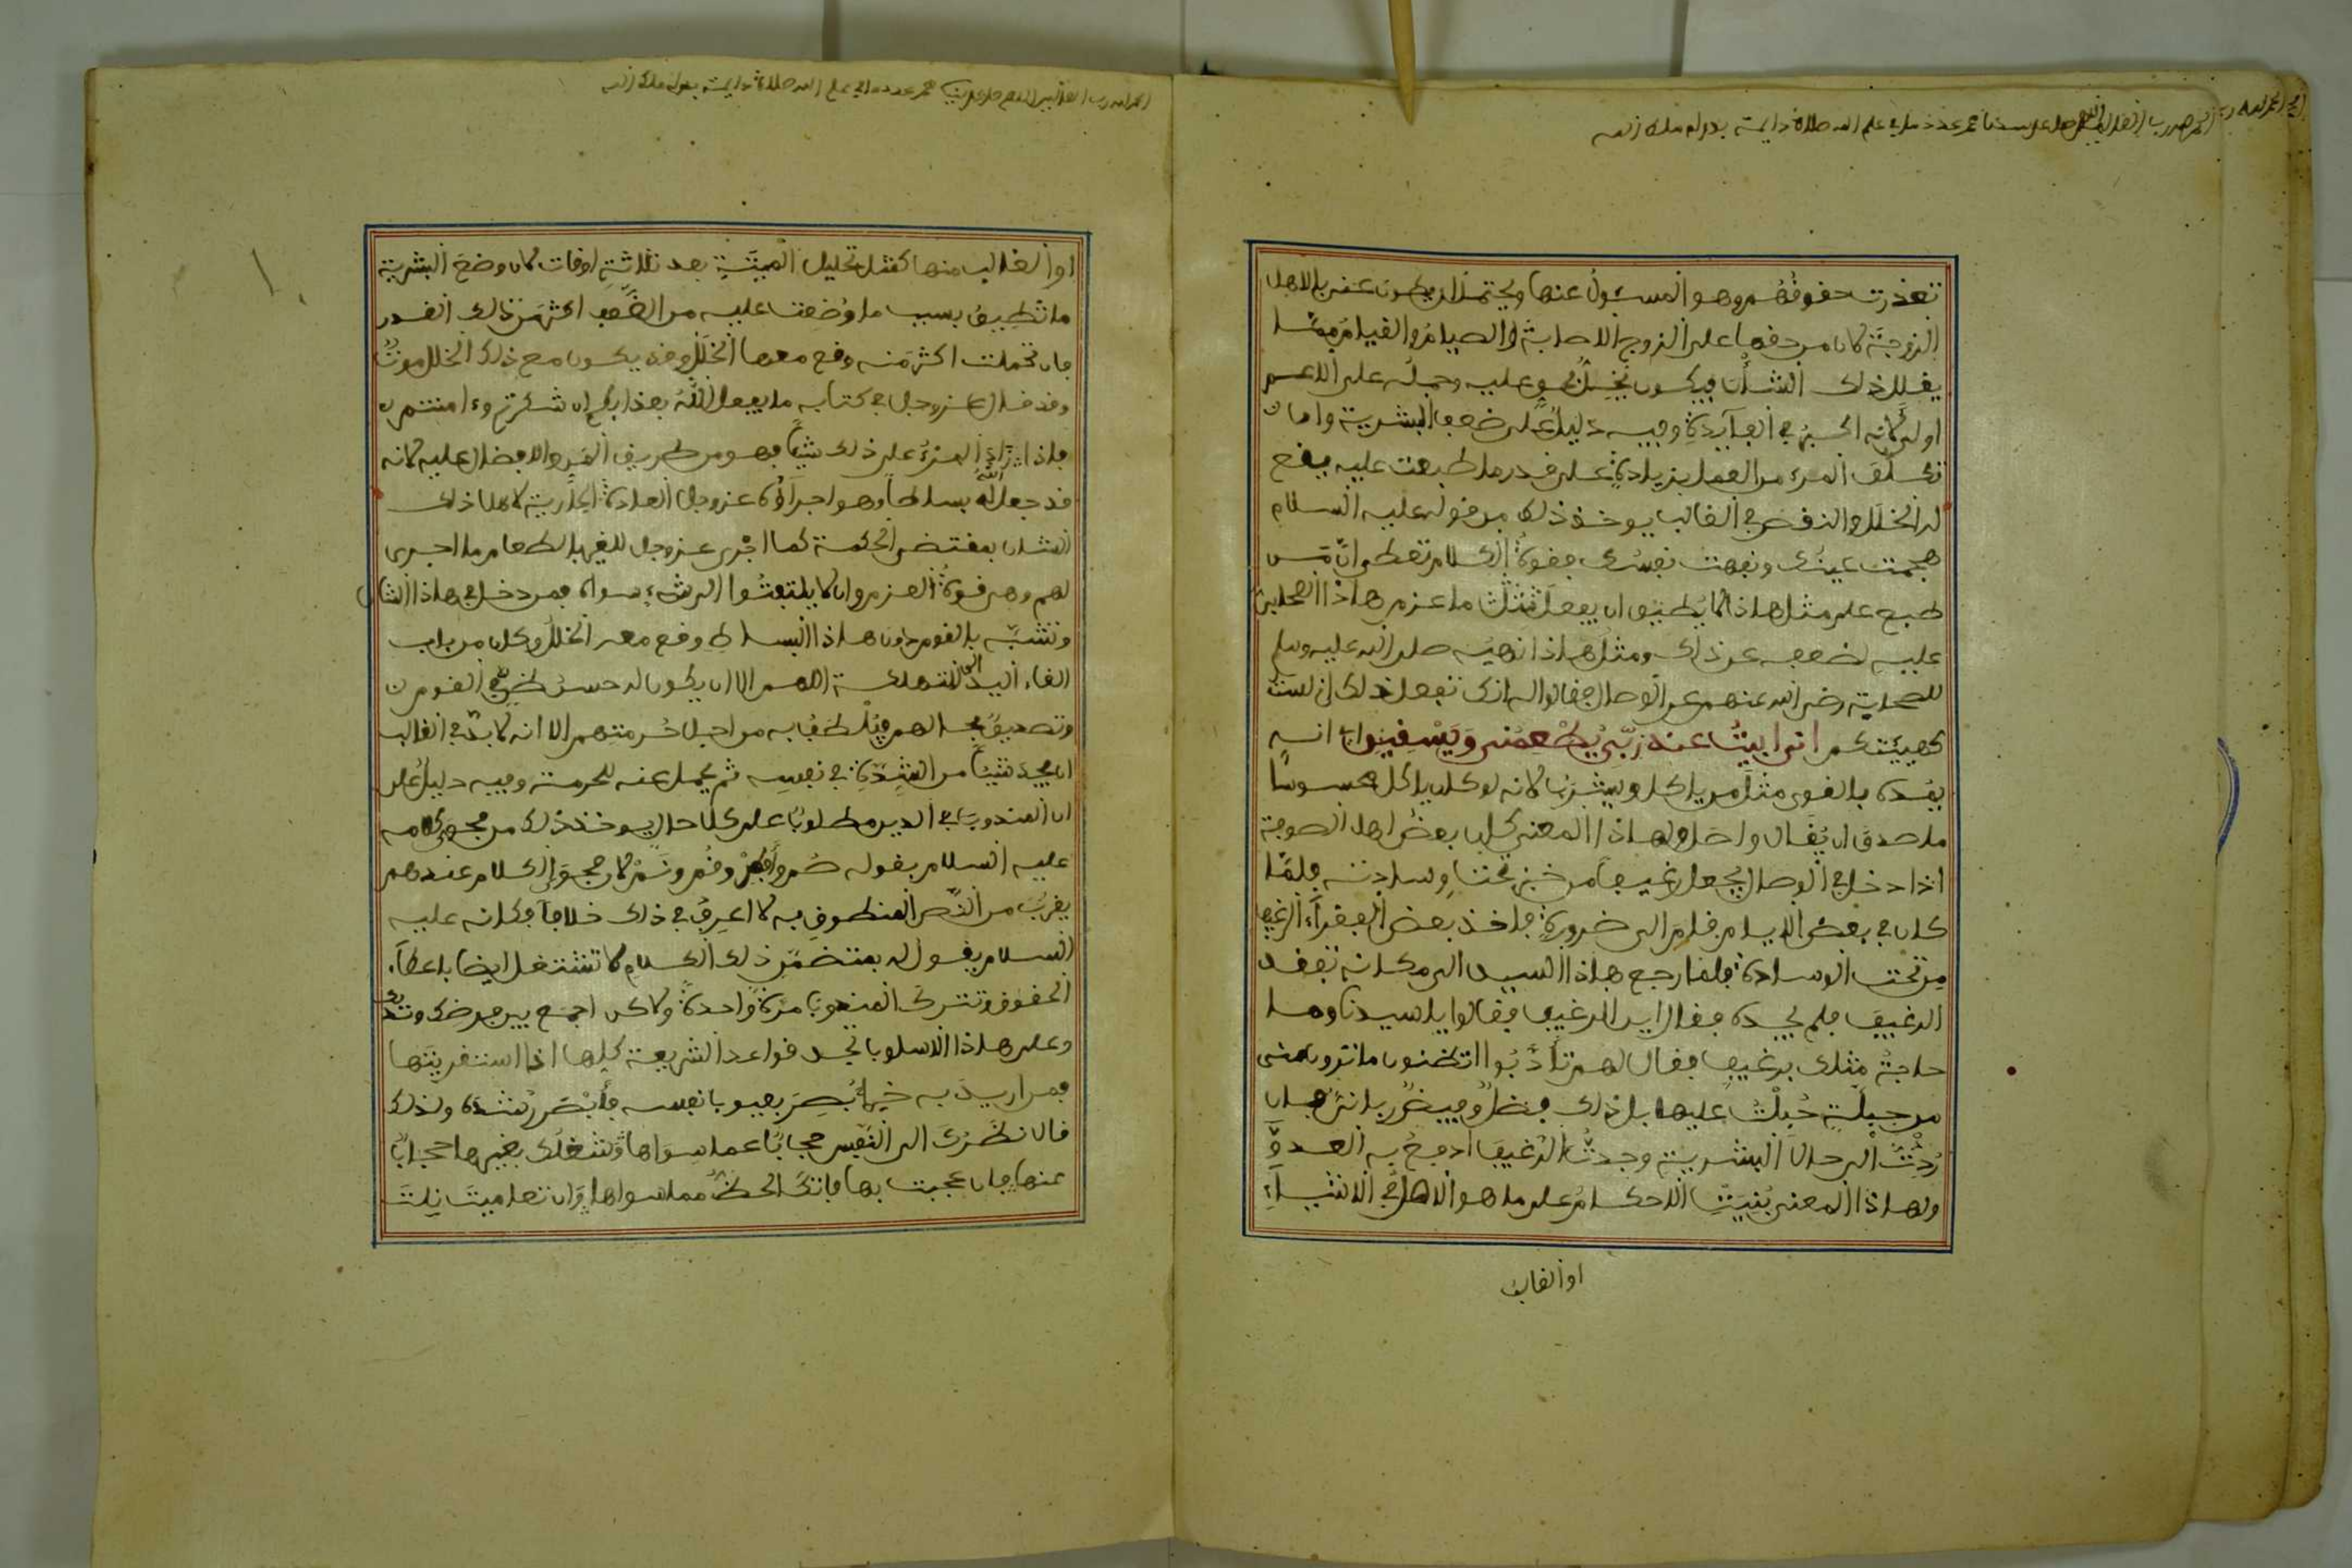 تعذرت حقوقهم وهو المسئول عنها ويحتمل ان يكون عنى بالاهل
الزوجة لان من حقها على الزوج الاصابة والصيام والقيام مما
يقلل ذلك الشأن فيكون يخل بحق عليه وحمله على الاعم
اولى لانه اكثر في الفآيدة وفيه دليل على ضعف البشرية وان ان
تكلف المرء من العمل بزيادة على قدر ما طبعت عليه يقع
له الخلل والنقص في الغالب يوخذ ذلك من قوله عليه السلام
هجمت عينك ونفهت نفسك فقوة الكلام تعطي ان من
طبع على مثل هاذا لا يطيق ان يفعل مثل ما عزم هاذا الصحابي
عليه لضعفه عن ذلك ومثل هاذا نهيه صلى الله عليه وسلم
للصحابة رضي الله عنهم عن الوصال فقالوا له انك تفعل ذلك اني لست
كهيئتكم اني ابيت عند ربي يطعمني ويسقيني اي انه
يمده بالقوى مثل من ياكل ويشرب لانه لو كان ياكل محسوسا
ما صدق ان يقال واصل ولهاذا المعنى كان بعض اهل الصوفة
اذا دخل في الوصال يجعل رغيفا من خبز تحت وسادته فلما
كان في بعض الايام قام الى ضرورة فاخذ بعض الفقرآء الرغيف
من تحت الوسادة فلما رجع هاذا السيد الى مكانه تفقد
الرغيف فلم يجده فقال اين الرغيف فقالوا يا سيدنا وما
حاجة مثلك برغيف فقال لهم تأدبوا اتظنون ما ترون مني
من جبلة جبلت عليها بل ذلك فضل وفيض رباني فان
رددت الى حال البشرية وجدت الرغيف ادفع به العدو
ولهاذا المعنى بنيت الاحكام على ما هو الاصل في الاشياء
او الغالب
او الغالب منها كمثل تحليل الميتة بعد ثلاثة اوقات لان وضع البشرية
ما تطيق بسبب ما وضعت عليه من الضعف اكثر من ذلك القدر
فان تحملت اكثر منه وقع معها الخلل وقد يكون مع ذلك الخلل موت
وقد قال عز وجل في كتابه ما يفعل الله بعذابكم ان شكرتم وءامنتم
فاذا زاد المرء على ذلك شيئا فهو من طريق المن والافضال عليه لانه
قد جعل الله له بساطا وهو اجرآؤه عز وجل العادة الجارية لاهل ذلك
الشان بمقتضى الحكمة كما اجرى عز وجل للغير بالطعام ما اجرى
لهم وهي قوة العزم وان لا يلتفتوا الى شيء سواه فمن دخل في هاذا الشان
وتشبه بالقوم دون هاذا البساط وقع معه الخلل وكان من باب
القاء اليد الى التهلكة اللهم الا ان يكون له حسن ظن في القوم
وتصديق بحالهم فيلطف به من اجل حرمتهم الا انه لا بد في الغالب
ان يجد شيئا من الشدة في نفسه ثم يحمل عنه للحرمة وفيه دليل على
ان المندوب في الدين مطلوب على كل حال يوخذ ذلك من فحوى كلامه
عليه السلام بقوله صم وأفطر وقم ونم لان فحوى الكلام عندهم
يقرب من النص المنطوق به لا اعرف في ذلك خلافا فكانه عليه
السلام يقول له بمتضمن ذلك الكلام لا تشتغل ايضا باعطآء
الحقوق وتترك المندوب مرة واحدة ولاكن اجمع بين فرضك وندبك
وعلى هاذا الاسلوب تجد قواعد الشريعة كلها اذا استقريتها
فمن اريد به خيرا بصر بعيوب نفسه فأبصر رشده ولذلك
قال نظرك الى النفس حجاب عما سواها وشغلك بغيرها حجاب
عنها فان عجبت بها فاتك الحظ مما سواها وان تعاميت نلت